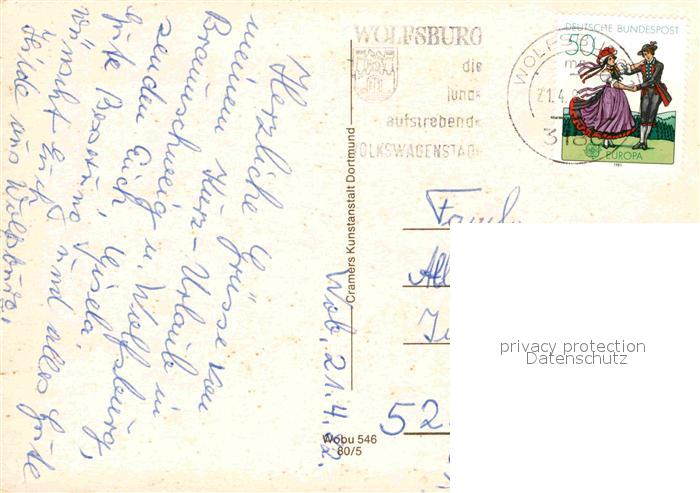 WOLFSBURG
die
junge
aufstrebende
VOLKSWAGENSTADT
WOLFSBU
21.4.
3180
DEUTSCHE BUNDESPOST
50
EUROPA
1981
Herzliche Grüsse von
meinem Kurz-Urlaub in
Braunschweig u. Wolfsburg,
senden Euch Gisela,
Gute Besserung
wünscht Euch und alles Gute
Hilde aus Wolfsburg.
Wob, 21.4.82.
Cramers Kunstanstalt Dortmund
Famil
All
52
Wobu 546
80/5
privacy protection
Datenschutz